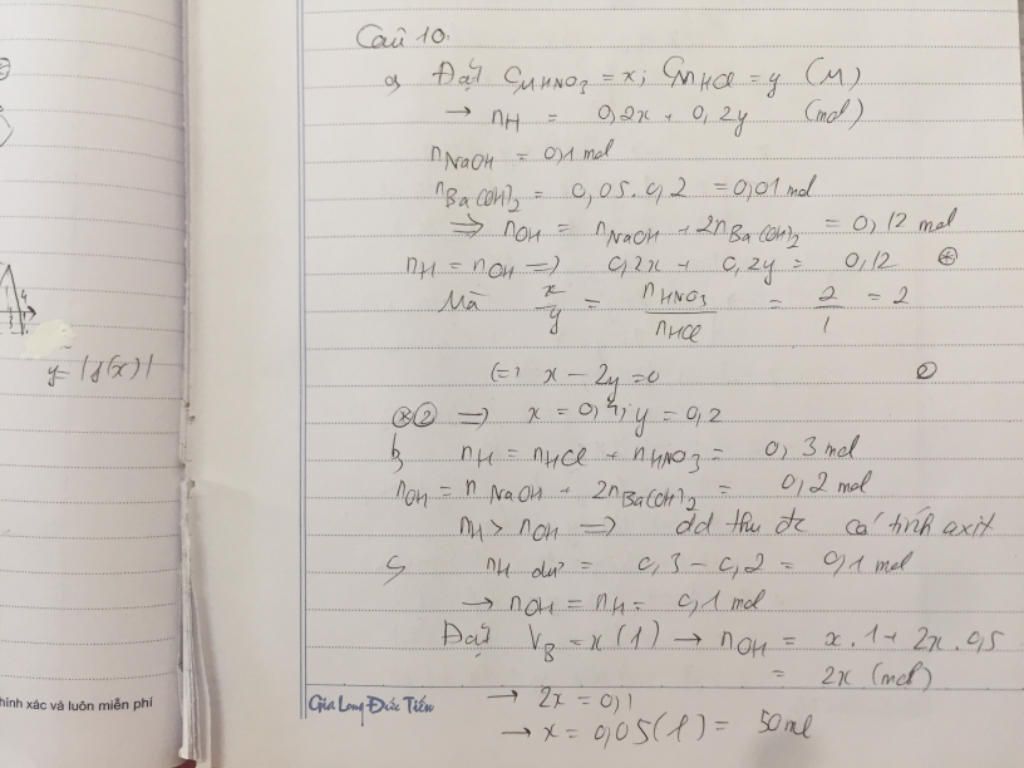 y = |f(x)|
hính xác và luôn miễn phí
Câu 10.
a, Đặt CM HNO3 = x; CM HCl = y (M)
→ nH = 0,2x + 0,2y (mol)
nNaOH = 0,1 mol
nBa(OH)2 = 0,05.0,2 = 0,01 mol
⇒ nOH = nNaOH + 2nBa(OH)2 = 0,12 mol
nH = nOH ⇒ 0,2x + 0,2y = 0,12 (*)
Mà x/y = nHNO3/nHCl = 2/1 = 2
(=) x - 2y = 0
(*)(2) ⇒ x = 0,4; y = 0,2
b, nH = nHCl + nHNO3 = 0,3 mol
nOH = nNaOH + 2nBa(OH)2 = 0,2 mol
nH > nOH ⇒ dd thu đc có tính axit
c, nH dư = 0,3 - 0,2 = 0,1 mol
→ nOH = nH = 0,1 mol
Đặt VB = x (l) → nOH = x.1 + 2x.0,5
= 2x (mol)
→ 2x = 0,1
→ x = 0,05 (l) = 50 ml
Gia Long Đức Tiến